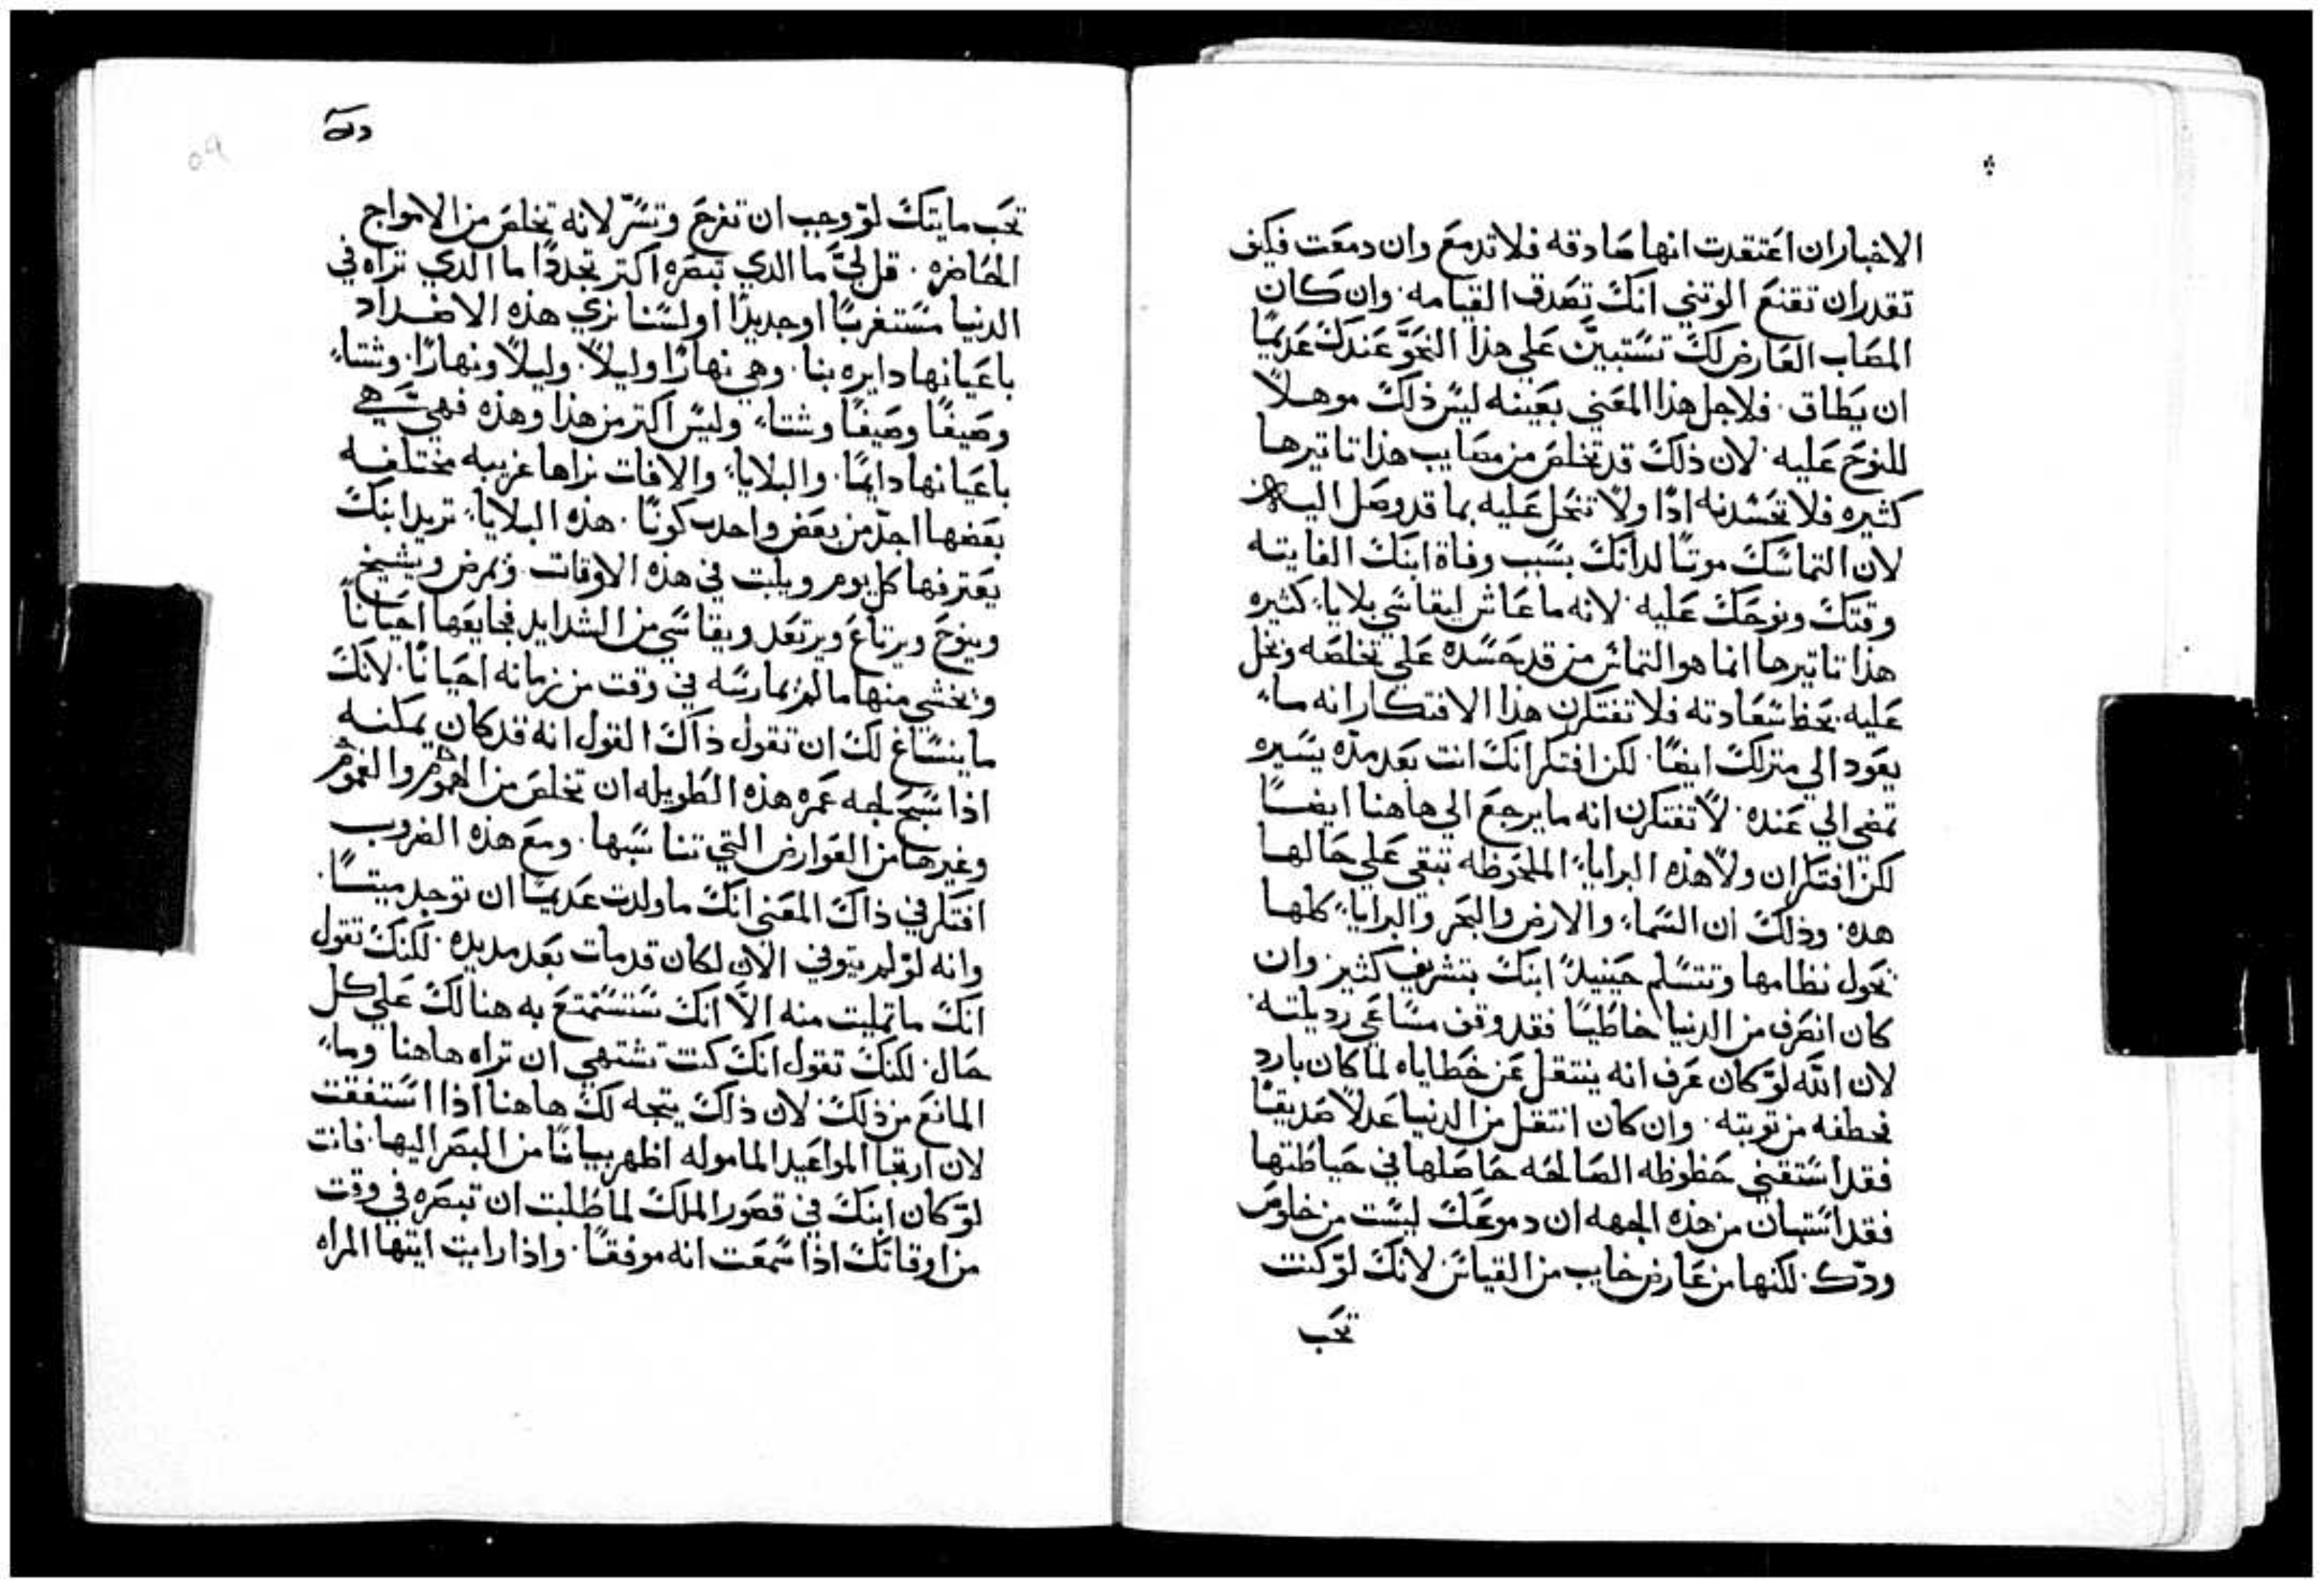 الاخبار ان اعتقدت انها صادقه فلا تدمع وان دمعت فكيف
تقدر ان تقنع الوتني انك تصدق القيامه وان كان
المصاب العارض لك تستبين علي هذا النحو عندك عديمًا
ان يطاق فلاجل هذا المعني بعينه ليس ذلك موهلاً
للنوح عليه لان ذلك قد تخلص من مصايب هذا تاتيرها
كثيره فلا تحسدنه ادًا ولا تبخل عليه بما قد وصل اليه
لان التماسك موتًا لداتك بسبب وفاة ابنك الفايته
وقتك ونوحك عليه لانه ما عاش ليقاسي بلايا كثيره
هذا تاتيرها انما هو التماس من قد حسده علي تخلصه وبخل
عليه بحظ سعادته فلا تفتكرن هذا الافتكار انه ما
يعود الي منزلك ايضًا لكن افتكر انك انت بعد مده يسيره
تمضي الي عنده لا تفتكرن انه ما يرجع الي هاهنا ايضًا
لكن افتكر ان ولا هذه البرايا الملحوظه تبقي علي حالها
هده وذلك ان السما والارض والبحر والبرايا كلها
تحول نظامها وتتسلم حينيدً ابنك بتشريف كثير وان
كان انصرف من الدنيا خاطيًا فقد وقف مساعي رديلته
لان الله لو كان عرف انه ينتقل عن خطاياه لما كان بادر
فخطفه من توبته وان كان انتقل من الدنيا عدلاً صديقًا
فقد استقني حظوظه الصالحه حاصلها في حياطتها
فقد استبان من هذه الجهه ان دموعك ليست من خلوص
ودّك لكنها من عارض خايب من القياس لانك لو كنت
تحب
تحب مايتك لو وجب ان تفرح وتسرّ لانه تخلص من الامواج
الحاضره قل ليَّ ما الدي تبصره اكتر تجددًا ما الدي تراه في
الدنيا مستغربًا او جديدًا اولسنا نري هذه الاضداد
باعيانها دايره بنا وهي نهارًا وليلاً وليلاً ونهارًا وشتا
وصيفًا وصيفًا وشتا وليس اكتر من هذا وهذه فهي هي
باعيانها دايمًا والبلايا والافات نراها غريبه مختلفه
بعضها احدّ من بعض واحدب كونًا هذه البلايا تريد ابنك
يغترفها كل يوم ويلبت في هذه الاوقات ويمرض ويشيخ
وينوح ويرتاع ويرتعد ويقاسي من الشدايد فجايعها احيانًا
ويخشي منها ما لم يمارسه في وقت من زمانه احيانًا لانك
ما ينساغ لك ان تقول ذاك القول انه قد كان يمكنه
اذا سبح لجه عمره هذه الطويله ان تخلص من الهموم والغموم
وغيرها من العوارض التي تناسبها ومع هذه الضروب
افتكر في ذاك المعني انك ما ولدت عديمًا ان توجد ميتًا
وانه لو لم يتوفي الان لكان قد مات بعد مديده لكنك تقول
انك ما تمليت منه الاّ انك ستستمتع به هنالك علي كل
حال لكنك تقول انك كنت تشتهي ان تراه هاهنا وما
المانع من ذلك لان ذلك يتجه لك هاهنا اذا استفقت
لان ارتجا المواعيد الماموله اظهر بيانًا من البصر اليها فانت
لو كان ابنك في قصور الملك لما طلبت ان تبصره في وقت
من اوقاتك اذا سمعت انه موفقًا واذا رايت ايتها المراه